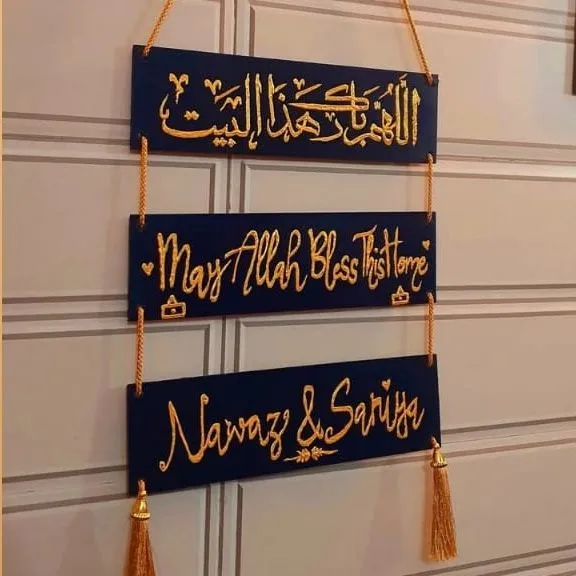 اللهم بارك هذا البيت
May Allah Bless This Home
Nawaz & Saniya